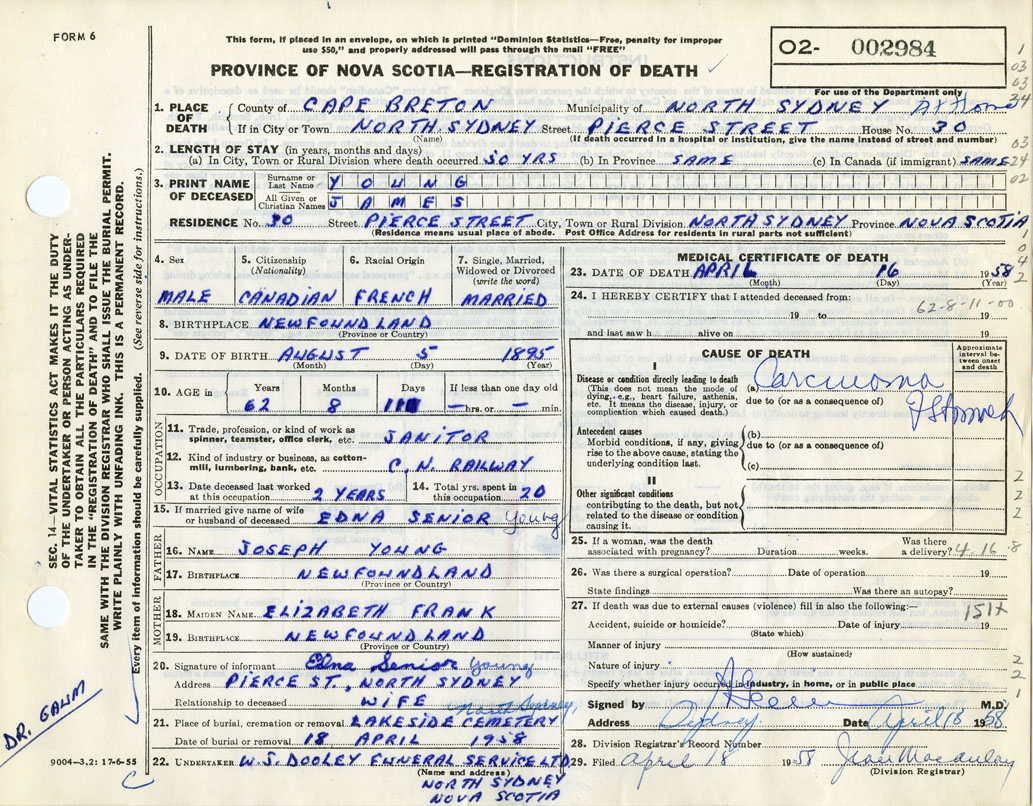 FORM 6
This form, if placed in an envelope, on which is printed "Dominion Statistics—Free, penalty for improper
use $50," and properly addressed will pass through the mail "FREE"
PROVINCE OF NOVA SCOTIA—REGISTRATION OF DEATH
O2- 002984
For use of the Department only
1. PLACE OF DEATH County of CAPE BRETON Municipality of NORTH SYDNEY At Home
If in City or Town NORTH SYDNEY Street PIERCE STREET House No. 30
(Name) (If death occurred in a hospital or institution, give the name instead of street and number)
2. LENGTH OF STAY (in years, months and days)
(a) In City, Town or Rural Division where death occurred 30 YRS (b) In Province SAME (c) In Canada (if immigrant) SAME
3. PRINT NAME OF DECEASED
Surname or Last Name YOUNG
All Given or Christian Names JAMES
RESIDENCE No. 30 Street PIERCE STREET City, Town or Rural Division NORTH SYDNEY Province NOVA SCOTIA
(Residence means usual place of abode. Post Office Address for residents in rural parts not sufficient)
4. Sex
MALE
5. Citizenship (Nationality)
CANADIAN
6. Racial Origin
FRENCH
7. Single, Married, Widowed or Divorced (write the word)
MARRIED
8. BIRTHPLACE NEWFOUNDLAND
(Province or Country)
9. DATE OF BIRTH AUGUST 5 1895
(Month) (Day) (Year)
10. AGE in Years Months Days If less than one day old
62 8 11 — hrs. or — min.
OCCUPATION
11. Trade, profession, or kind of work as
spinner, teamster, office clerk, etc. JANITOR
12. Kind of industry or business, as cotton-
mill, lumbering, bank, etc. C.N. RAILWAY
13. Date deceased last worked
at this occupation 2 YEARS
14. Total yrs. spent in
this occupation 20
15. If married give name of wife
or husband of deceased EDNA SENIOR Young
FATHER
16. NAME JOSEPH YOUNG
17. BIRTHPLACE NEWFOUNDLAND
(Province or Country)
MOTHER
18. MAIDEN NAME ELIZABETH FRANK
19. BIRTHPLACE NEWFOUNDLAND
(Province or Country)
20. Signature of informant Edna Senior Young
Address PIERCE ST., NORTH SYDNEY
Relationship to deceased WIFE
North Sydney
21. Place of burial, cremation or removal LAKESIDE CEMETERY
Date of burial or removal 18 APRIL 1958
22. UNDERTAKER W.S. DOOLEY FUNERAL SERVICE LTD
(Name and address)
NORTH SYDNEY
NOVA SCOTIA
MEDICAL CERTIFICATE OF DEATH
23. DATE OF DEATH APRIL 16 1958
(Month) (Day) (Year)
24. I HEREBY CERTIFY that I attended deceased from:
62-8-11-00
19 to 19
and last saw h alive on 19
CAUSE OF DEATH
Approximate interval between onset and death
I
Disease or condition directly leading to death
(This does not mean the mode of
dying, e.g., heart failure, asthenia,
etc. It means the disease, injury, or
complication which caused death.)
(a) Carcinoma
due to (or as a consequence of)
of Stomach
Antecedent causes
Morbid conditions, if any, giving
rise to the above cause, stating the
underlying condition last.
(b)
due to (or as a consequence of)
(c)
II
Other significant conditions
contributing to the death, but not
related to the disease or condition
causing it.
25. If a woman, was the death
associated with pregnancy? Duration weeks. Was there
a delivery? 4.16.8
26. Was there a surgical operation? Date of operation 19
State findings Was there an autopsy?
27. If death was due to external causes (violence) fill in also the following:—
151x
Accident, suicide or homicide? Date of injury 19
(State which)
Manner of injury
(How sustained)
Nature of injury
Specify whether injury occurred in industry, in home, or in public place
Signed by M.D.
Address Sydney Date April 18 1958
28. Division Registrar's Record Number
29. Filed April 18 1958 Jean Macaulay
(Division Registrar)
SEC. 14—VITAL STATISTICS ACT MAKES IT THE DUTY
OF THE UNDERTAKER OR PERSON ACTING AS UNDER-
TAKER TO OBTAIN ALL THE PARTICULARS REQUIRED
IN THE "REGISTRATION OF DEATH" AND TO FILE THE
SAME WITH THE DIVISION REGISTRAR WHO SHALL ISSUE THE BURIAL PERMIT.
WRITE PLAINLY WITH UNFADING INK. THIS IS A PERMANENT RECORD.
Every item of information should be carefully supplied. (See reverse side for instructions.)
DR. GAUM
9004—3.2: 17-6-55
C